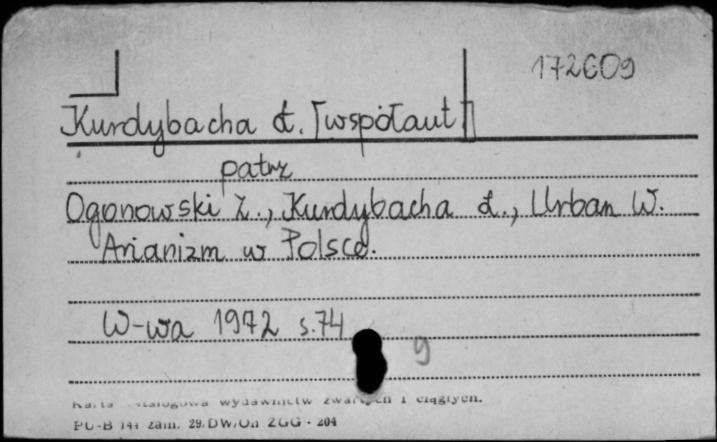 172609
Kurdybacha Ł. [współaut]
patrz
Ogonowski Z., Kurdybacha Ł., Urban W.
Arianizm w Polsce.
W-wa 1972 s.74
9
Karta katalogowa wydawnictw zwartych i ciągłych.
PU-B 144 zam. 29/DW/Un ZGG - 204